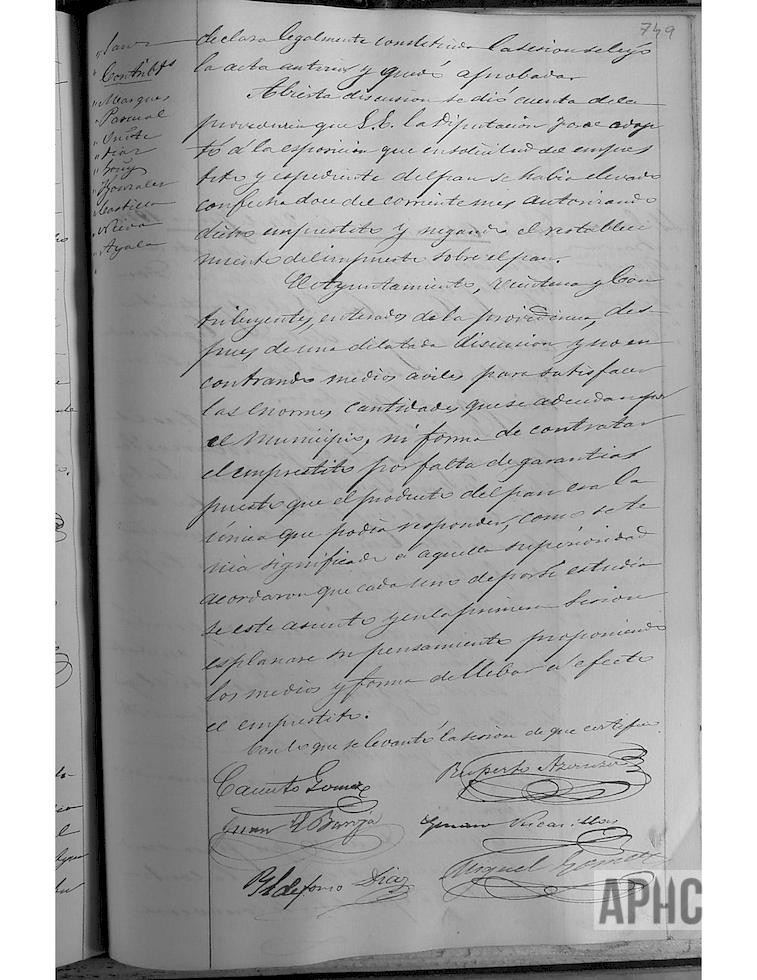 749
" Contrib.ts
" Marques
" Pascual
" Diaz
" Gonzalez
" Castilla
" Ayala
declara legalmente constituida la sesion se leyó
la acta anterior y quedó aprobada.
Abierta discusion se dió cuenta de la
providencia que S.E. la Diputacion
tó á la esposicion que en solicitud del empres
tito y espediente del pan se habia elevado
con fecha doce del corriente mes autorizando
dicho empréstito y negando el restableci
miento del impuesto sobre el pan.
El Ayuntamiento, Veintena y Con
tribuyentes, enterados de la providencia, des-
pues de una dilatada discusion y no en
contrando medios para satisfacer
las enormes cantidades que se adeudan por
el Municipio, ni forma de contratar
el emprestito por falta de garantias
puesto que el producto del pan era la
única que podia responder, como se te
nia significado á aquella superioridad
acordaron que cada uno de por sí estudia
se este asunto y en la primera Sesion
esplanase su pensamiento proponiendo
los medios y forma de llebar á efecto
el emprestito.
Con lo que se levantó la sesion de que certifico.
Canuto Gomez
Ruperto
Juan
Yldefonso Diaz
Miguel
APHC